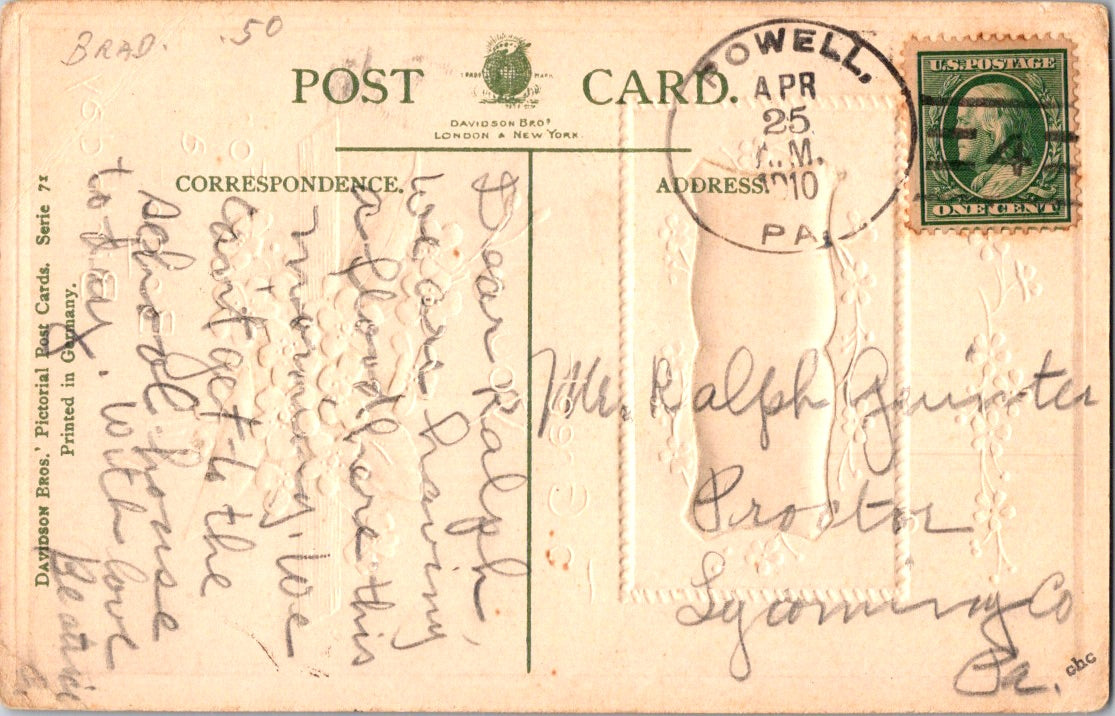 BRAD. .50
POST CARD.
TRADE MARK
DAVIDSON BROS
LONDON & NEW YORK.
CORRESPONDENCE.
ADDRESS.
POWELL,
APR
25
A.M.
1910
PA.
U.S. POSTAGE
4
ONE CENT
Dear Ralph,
We are having
a flood here this
morning. We
can't get to the
school house
to-day. With love
Beatrice
Mr. Ralph
Proctor
Lycoming Co
Pa.
chc
DAVIDSON BROS.' Pictorial Post Cards. Serie 71
Printed in Germany.